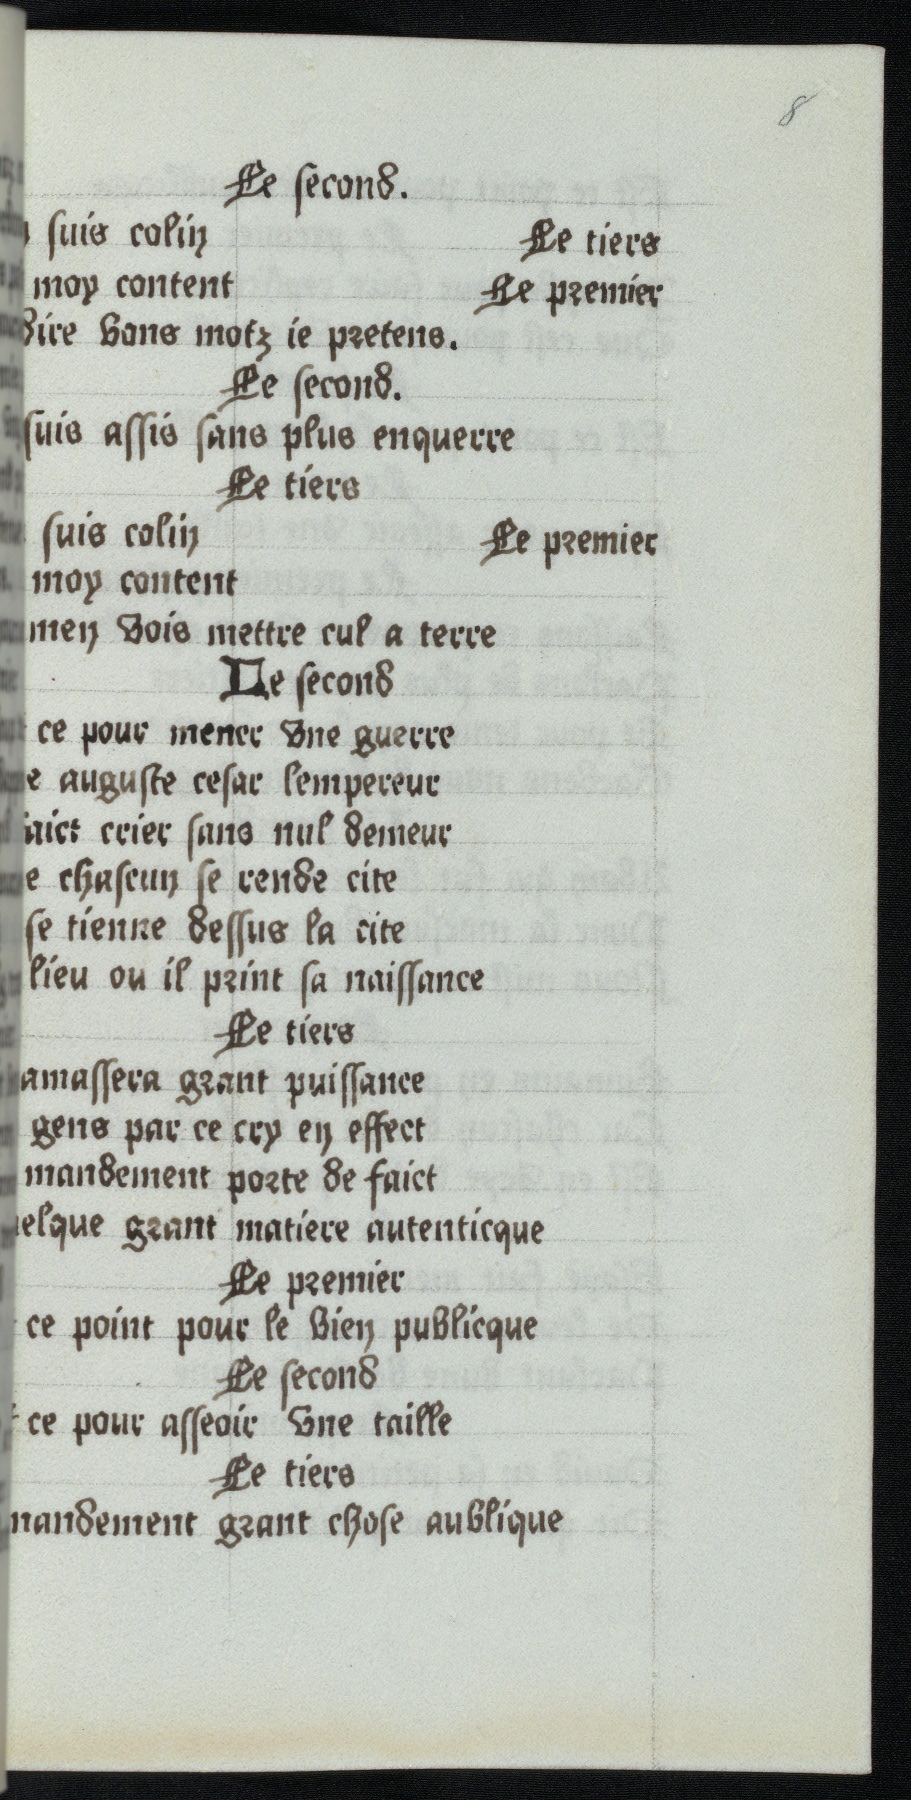 8
Le second.
suis colin Le tiers
moy content Le premier
dire bons motz ie pretens.
Le second.
suis assis sans plus enquerre
Le tiers
suis colin Le premier
moy content
men vois mettre cul a terre
Le second
ce pour mener vne guerre
auguste cesar lempereur
faict crier sans nul demeur
chascun se rende cite
se tienne dessus la cite
lieu ou il print sa naissance
Le tiers
amassera grant puissance
gens par ce cry en effect
mandement porte de faict
quelque grant matiere autenticque
Le premier
ce point pour le bien publicque
Le second
ce pour asseoir vne taille
Le tiers
mandement grant chose aublique